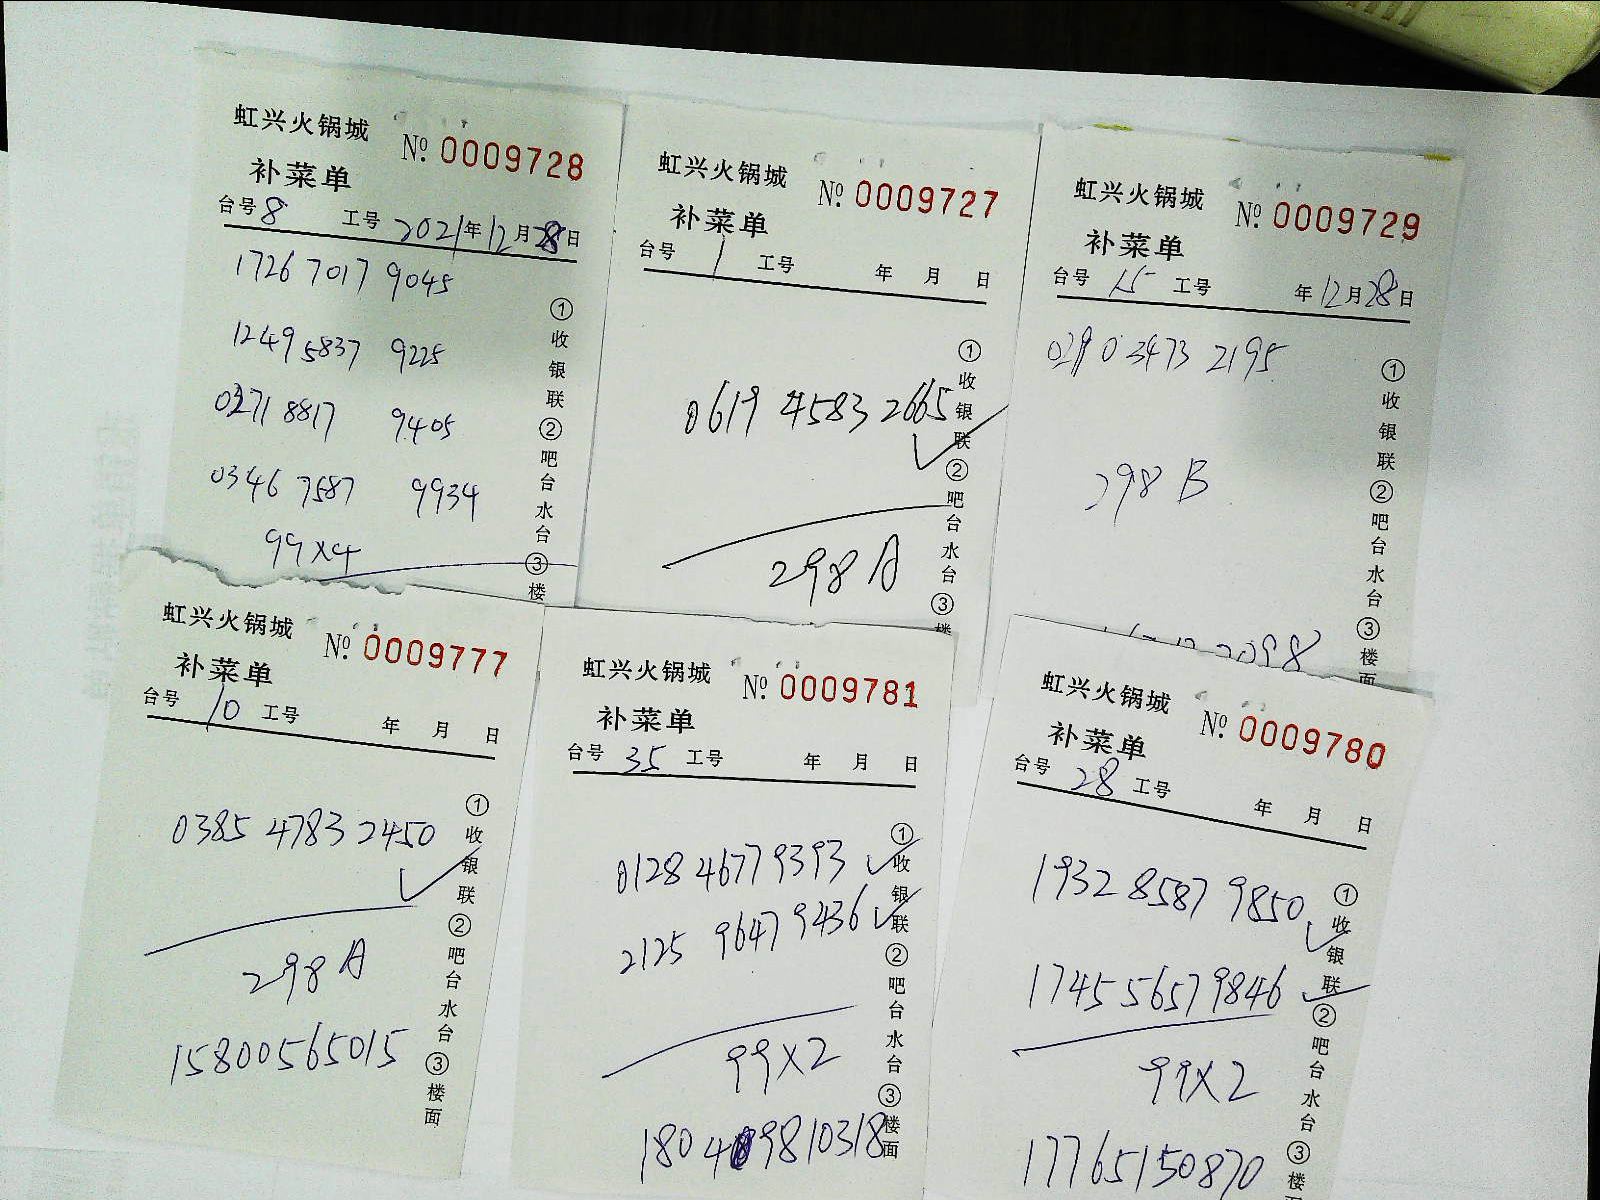 虹兴火锅城 №. 0009728
补菜单
台号 8 工号 2021年12月28日
1726 7017 9045
1249 5837 9225
0271 8817 9405
0346 7587 9934
99×4
①收银联②吧台水台③楼
虹兴火锅城 №. 0009727
补菜单
台号 1 工号 年 月 日
0619 4583 2665
298 A
①收银联②吧台水台③楼
虹兴火锅城 №. 0009729
补菜单
台号 15 工号 年12月28日
0290 3473 2195
298 B
①收银联②吧台水台③楼面
虹兴火锅城 №. 0009777
补菜单
台号 10 工号 年 月 日
0385 4783 2450
298 A
15800565015
①收银联②吧台水台③楼面
虹兴火锅城 №. 0009781
补菜单
台号 35 工号 年 月 日
0128 4677 9393
2125 9647 9436
99×2
①收银联②吧台水台③楼面
虹兴火锅城 №. 0009780
补菜单
台号 28 工号 年 月 日
1932 8587 9850
1745 5657 9846
99×2
17765150870
①收银联②吧台水台③楼